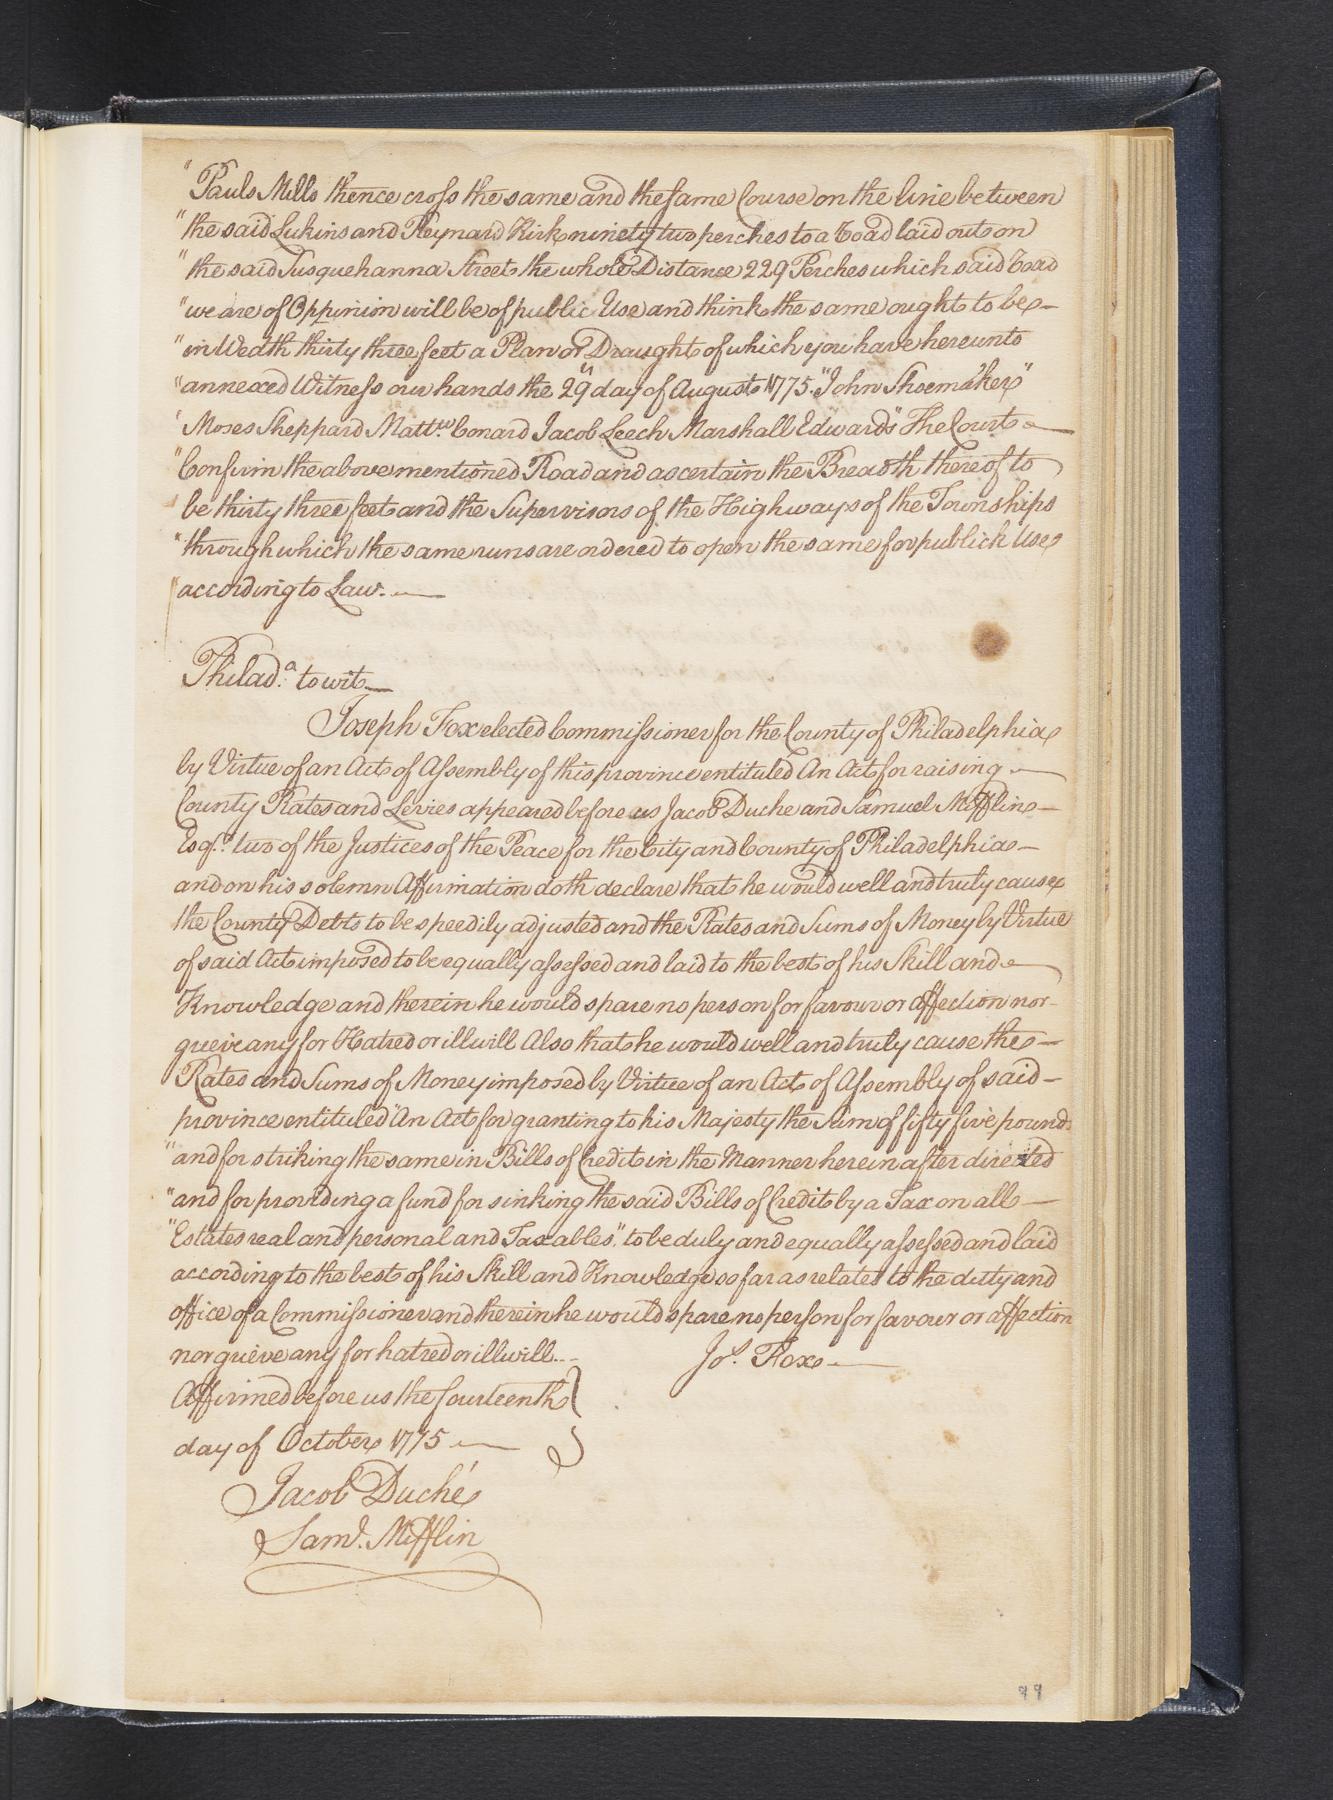 " Pauls Mills thence cross the same and the same Course on the line between
" the said Lukins and Reynard Kirk ninety two perches to a Road laid out on
" the said Susquehanna Street the whole Distance 229 Perches which said Road
" we are of Oppinion will be of public Use and think the same ought to be —
" in Wedth thirty three feet a Plan or Draught of which you have hereunto
" annexed Witness our hands the 29 day of August 1775. "John Shoemaker"
" Moses Sheppard Mattw. Conard Jacob Leech Marshall Edwards" The Court —
" Confirm the above mentioned Road and ascertain the Breadth thereof to
" be thirty three feet and the Supervisors of the Highways of the Townships
" through which the same runs are ordered to open the same for publick Use
" according to Law. —
Philad.a to wit —
Joseph Fox elected Commissioner for the County of Philadelphia
by Virtue of an Act of Assembly of this province entituled An Act for raising —
County Rates and Levies appeared before us Jacob Duche and Samuel Mifflin —
Esqrs. two of the Justices of the Peace for the City and County of Philadelphia —
and on his solemn Affirmation doth declare that he would well and truly cause
the County Debts to be speedily adjusted and the Rates and Sums of Money by Virtue
of said Act imposed to be equally assessed and laid to the best of his Skill and —
Knowledge and therein he would spare no person for favour or affection nor -
grieve any for Hatred or illwill Also that he would well and truly cause the —
Rates and Sums of Money imposed by Virtue of an Act of Assembly of said —
province entituled "An Act for granting to his Majesty the Sum of fifty five pounds
" and for striking the same in Bills of Credit in the Manner herein after directed
" and for providing a fund for sinking the said Bills of Credit by a Tax on all —
" Estates real and personal and Taxables". to be duly and equally assessed and laid
according to the best of his Skill and Knowledge so far as relates to the duty and
office of a Commissioner and therein he would spare no person for favour or affection
nor grieve any for hatred or illwill. -- Jos. Fox —
Affirmed before us the fourteenth }
day of October 1775 —
Jacob Duché
Saml. Mifflin
99